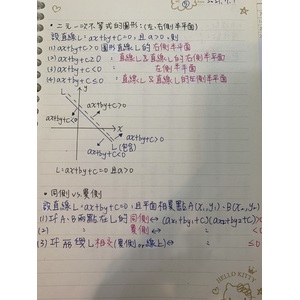 2021.9.1
• 二元一次不等式的圖形:(左、右側半平面)
設直線L:ax+by+c=0,且a>0,則
(1) ax+by+c>0 圖形直線L的右側半平面
(2) ax+by+c≥0 :直線L&直線L的右側半平面
(3) ax+by+c<0 : 左側半平面
(4) ax+by+c≤0 :直線L&直線L的左側半平面
L y
ax+by+c>0
ax+by+c<0
x
ax+by+c>0
L
ax+by+c<0
L=ax+by+c=0,且a>0
• 同側 vs. 異側
設直線L:ax+by+c=0,且平面相異點A(x₁,y₁)、B(x₂,y₂)
(1) 若A、B兩點在L的同側⇔(ax₁+by₁+c)(ax₂+by₂+c)>0
(2) 〃 異側⇔ 〃 <0
(3) 若 與L相交(異側or線上)⇔ 〃 ≤0
HELLO KITTY